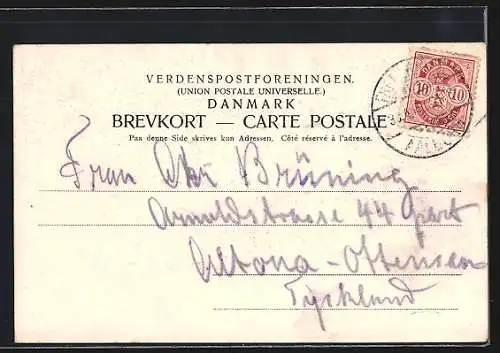 VERDENSPOSTFORENINGEN.
(UNION POSTALE UNIVERSELLE.)
DANMARK
BREVKORT — CARTE POSTALE
Paa denne Side skrives kun Adressen. Côté réservé à l'adresse.
DANMARK
10 10
Brüning
Arnoldstrasse 44 part
Altona-Ottensen
Tyskland